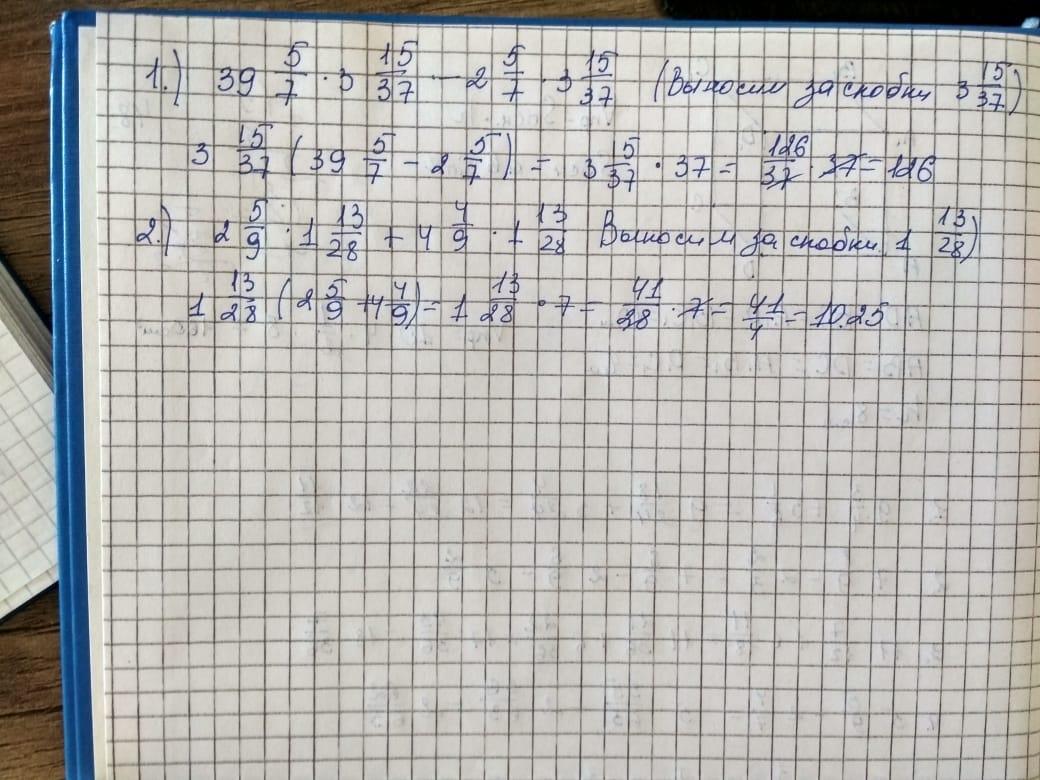 1.) 39 5/7 · 3 15/37 - 2 5/7 · 3 15/37 (Выносим за скобки 3 15/37)
3 15/37 (39 5/7 - 2 5/7) = 3 15/37 · 37 = 126/37 · 37 = 126
2.) 2 5/9 · 1 13/28 + 4 4/9 · 1 13/28 Выносим за скобки 1 13/28)
1 13/28 (2 5/9 + 4 4/9) = 1 13/28 · 7 = 41/28 · 7 = 41/4 = 10.25